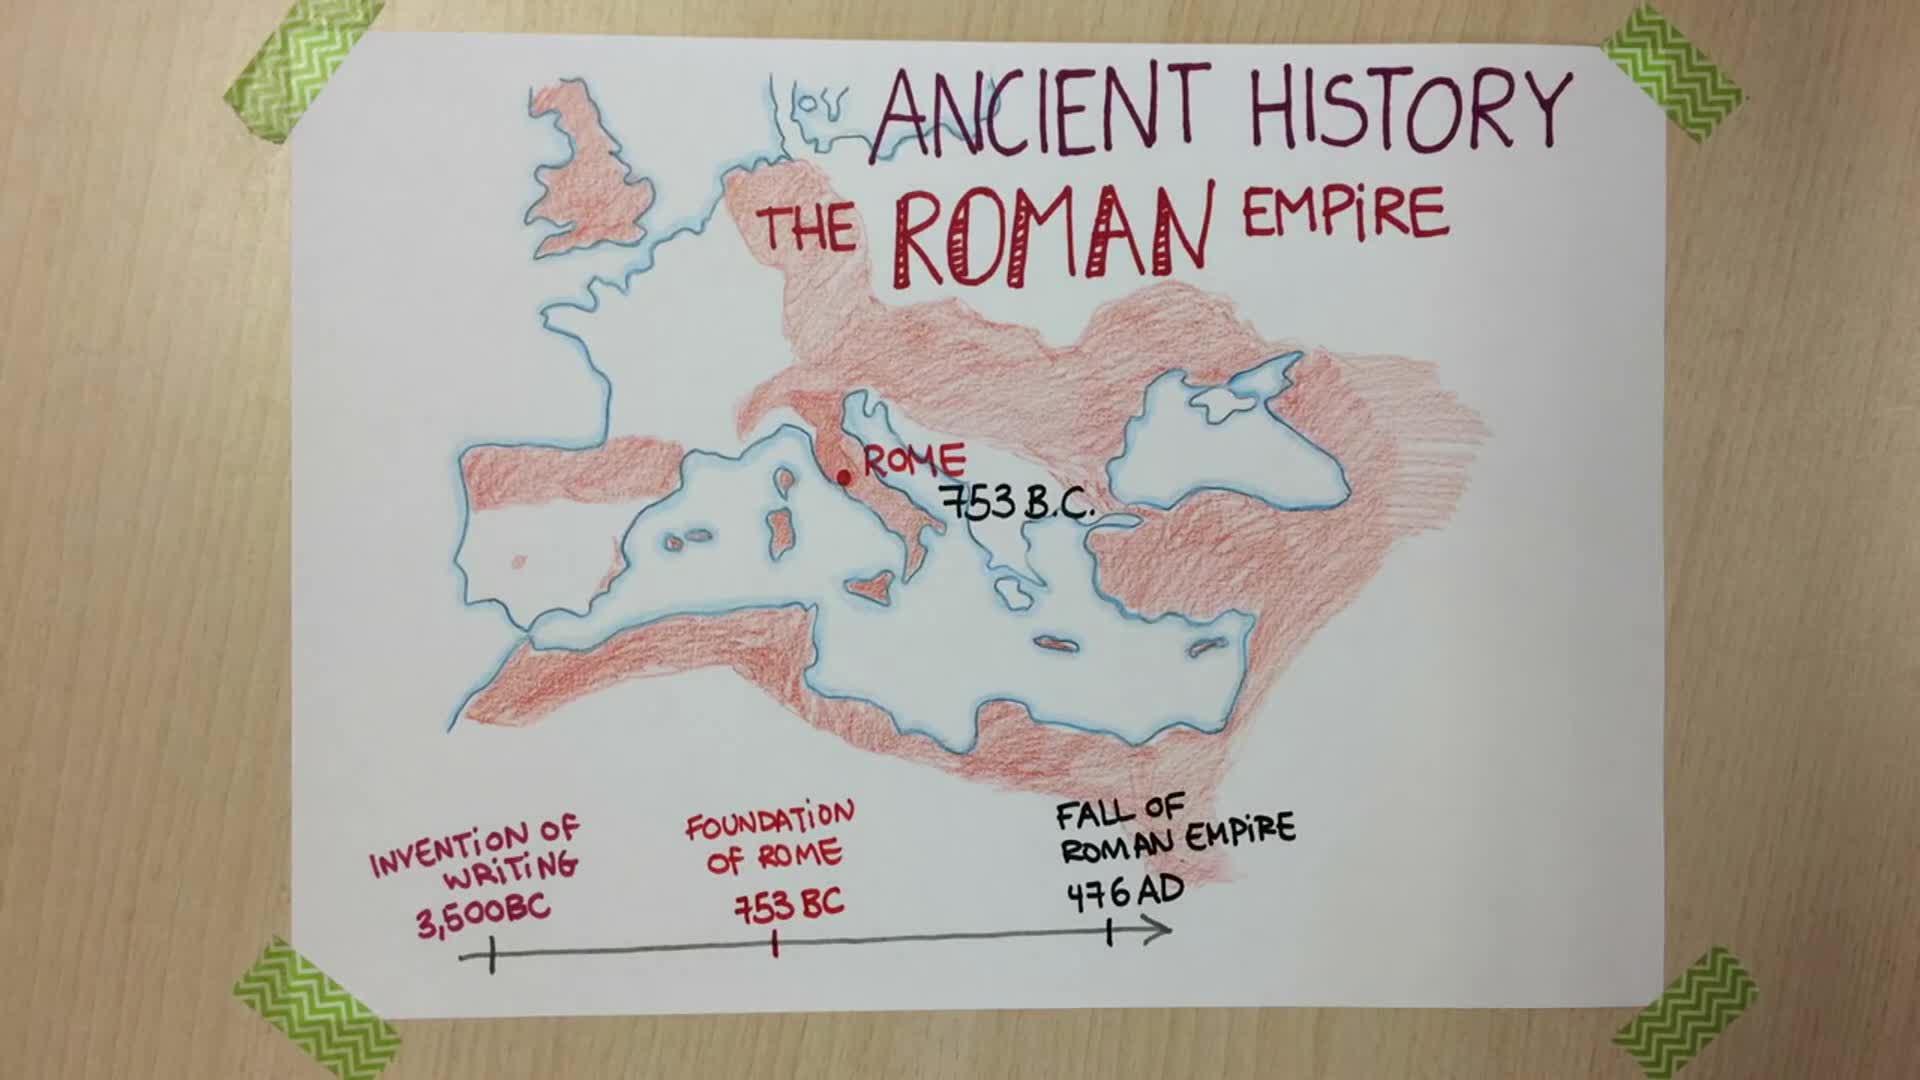 ANCIENT HISTORY
THE ROMAN EMPiRE
ROME
753 B.C.
INVENTiON OF
WRiTiNG
3,500BC
FOUNDATiON
OF ROME
753 BC
FALL OF
ROMAN EMPiRE
476 AD